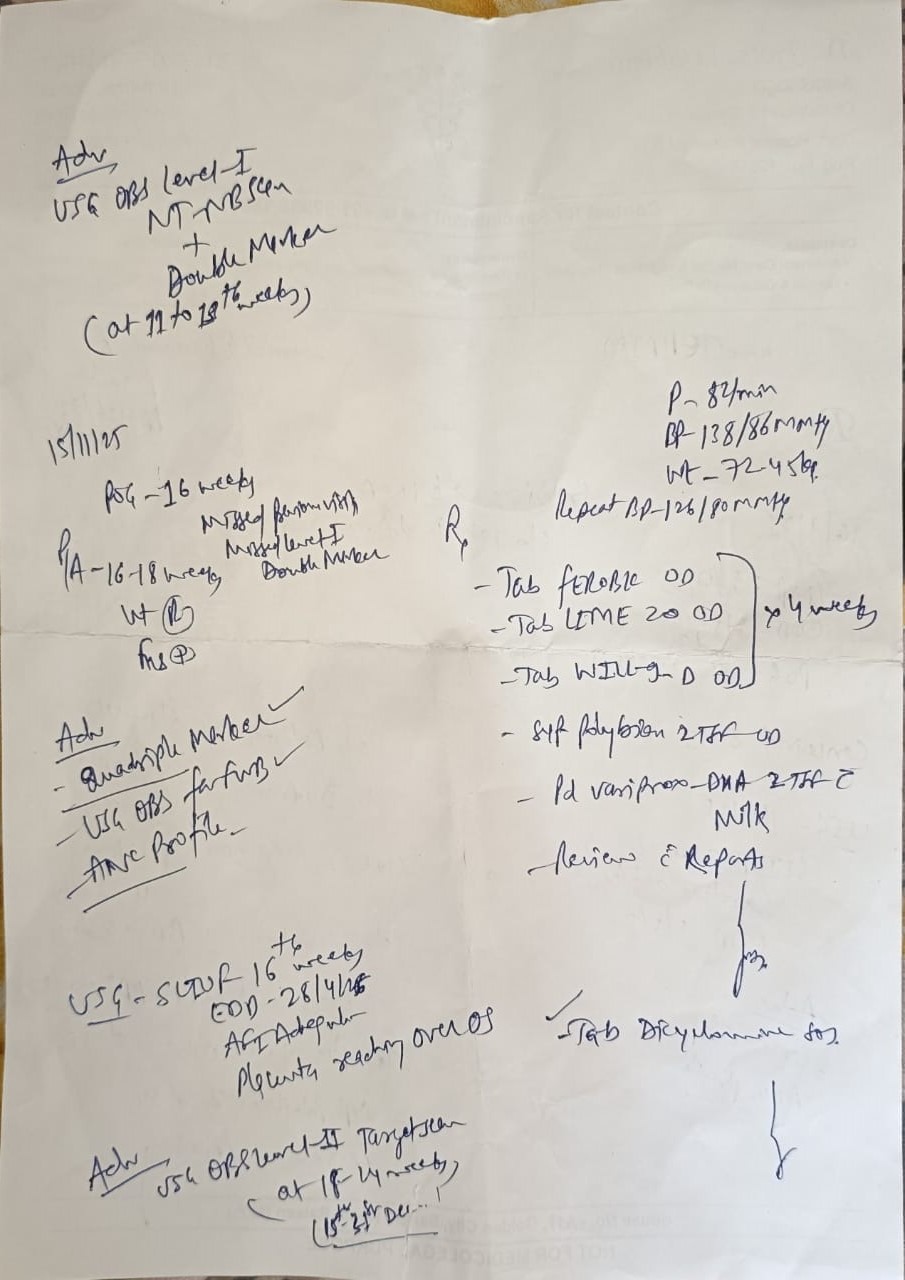 Adv
USG OBS level-I
NT-NB Scan
+
Double Marker
(at 11 to 13th weeks)
15/11/25
POG - 16 weeks
Missed previous visit
Missed level-I
Double Marker
P/A - 16-18 weeks
Ut (R)
FHS (+)
Adv
- Quadriple Marker
- USG OBS for FWB
- ANC Profile
USG - SLIUF 16 weeks
EDD - 28/4/26
AFI Adequate
Placenta reaching over OS
Adv
USG OBS level-II Target scan
(at 18-24 weeks)
(15th-31st Dec...)
P - 82/min
BP - 138/86 mmHg
Wt - 72.45 kg
Repeat BP - 126/80 mmHg
Rx
- Tab FEROBIC OD
- Tab LIME 20 OD
x 4 weeks
- Tab WILL-9-D OD
- Syp Polybion 2 TSF OD
- Pd variprox-DHA 2 TSF c̄
Milk
- Review c̄ Reports
- Tab Dicyclomine sos.
NOT FOR MEDICOLEGAL